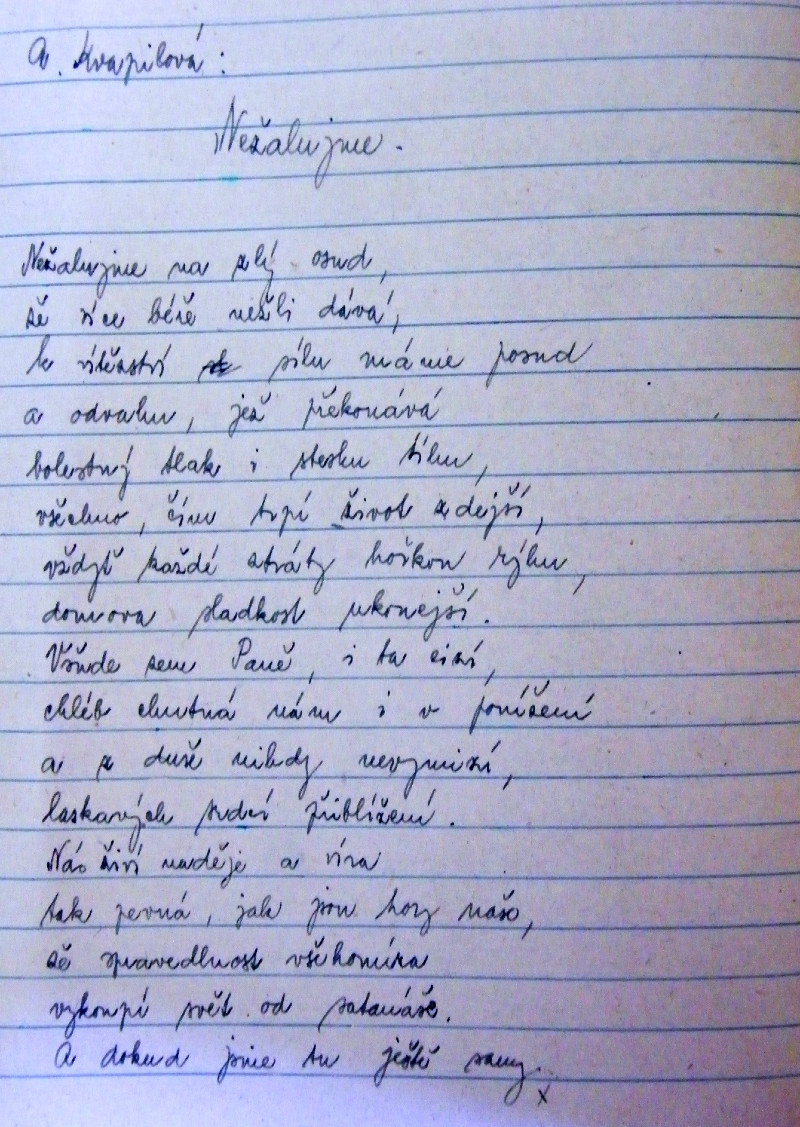 A. Kvapilová:
Nežalujme.
Nežalujme na zlý osud,
že více béře nežli dává,
k vítězství sílu máme posud
a odvahu, jež překonává
bolestný tlak i stesku tíhu,
všechno, čím trpí život zdejší,
vždyť každé ztráty hořkou rýhu,
domova sladkost ukonejší.
Všude zem Páně, i ta cizí,
chléb chutná nám i v ponížení
a z duše nikdy nevymizí,
laskavých srdcí přiblížení.
Nás živí naděje a víra
tak pevná, jak jsou hory naše,
že spravedlnost všehomíra
vykoupí svět od satanáše.
A dokud jsme tu ještě samy
x